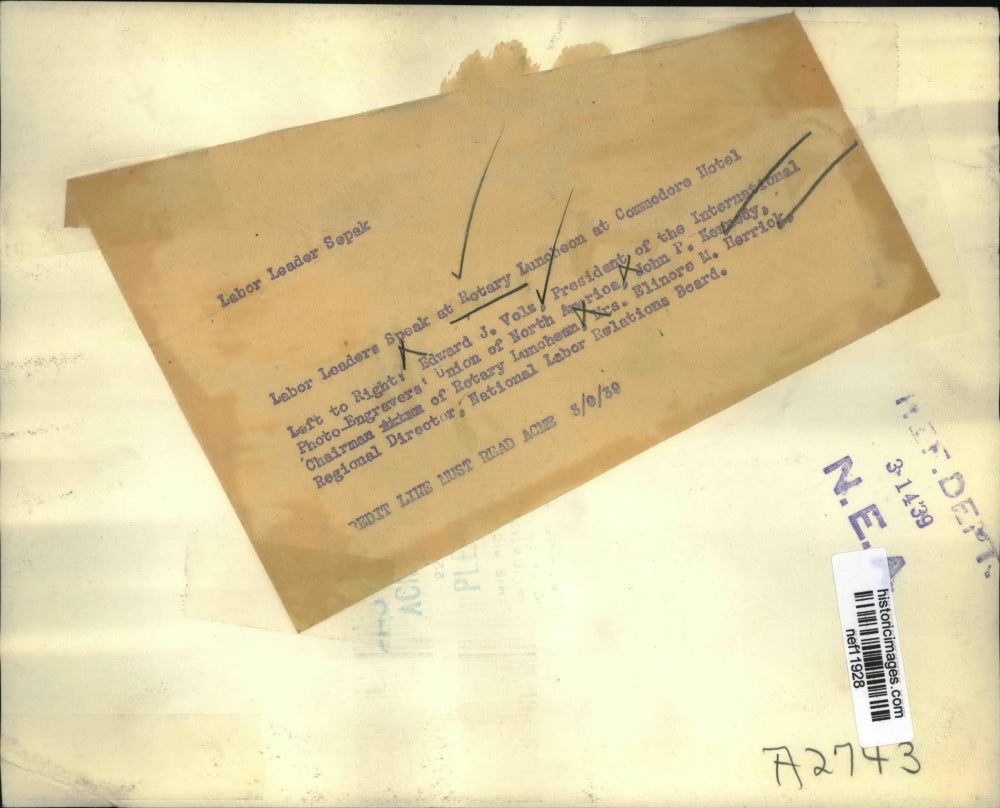 Labor Leader Sepak
Labor Leaders Speak at Rotary Luncheon at Commodore Hotel
Left to Right: Edward J. Volz, President of the International
Photo-Engravers' Union of North America, John P. Kennedy,
Chairman of Rotary Luncheon, Mrs. Elinore M. Herrick,
Regional Director, National Labor Relations Board.
REDIT LINE MUST READ ACME 3/9/39
REF. DEPT.
3-14'39
N.E.A
historicimages.com
nef11928
A2743